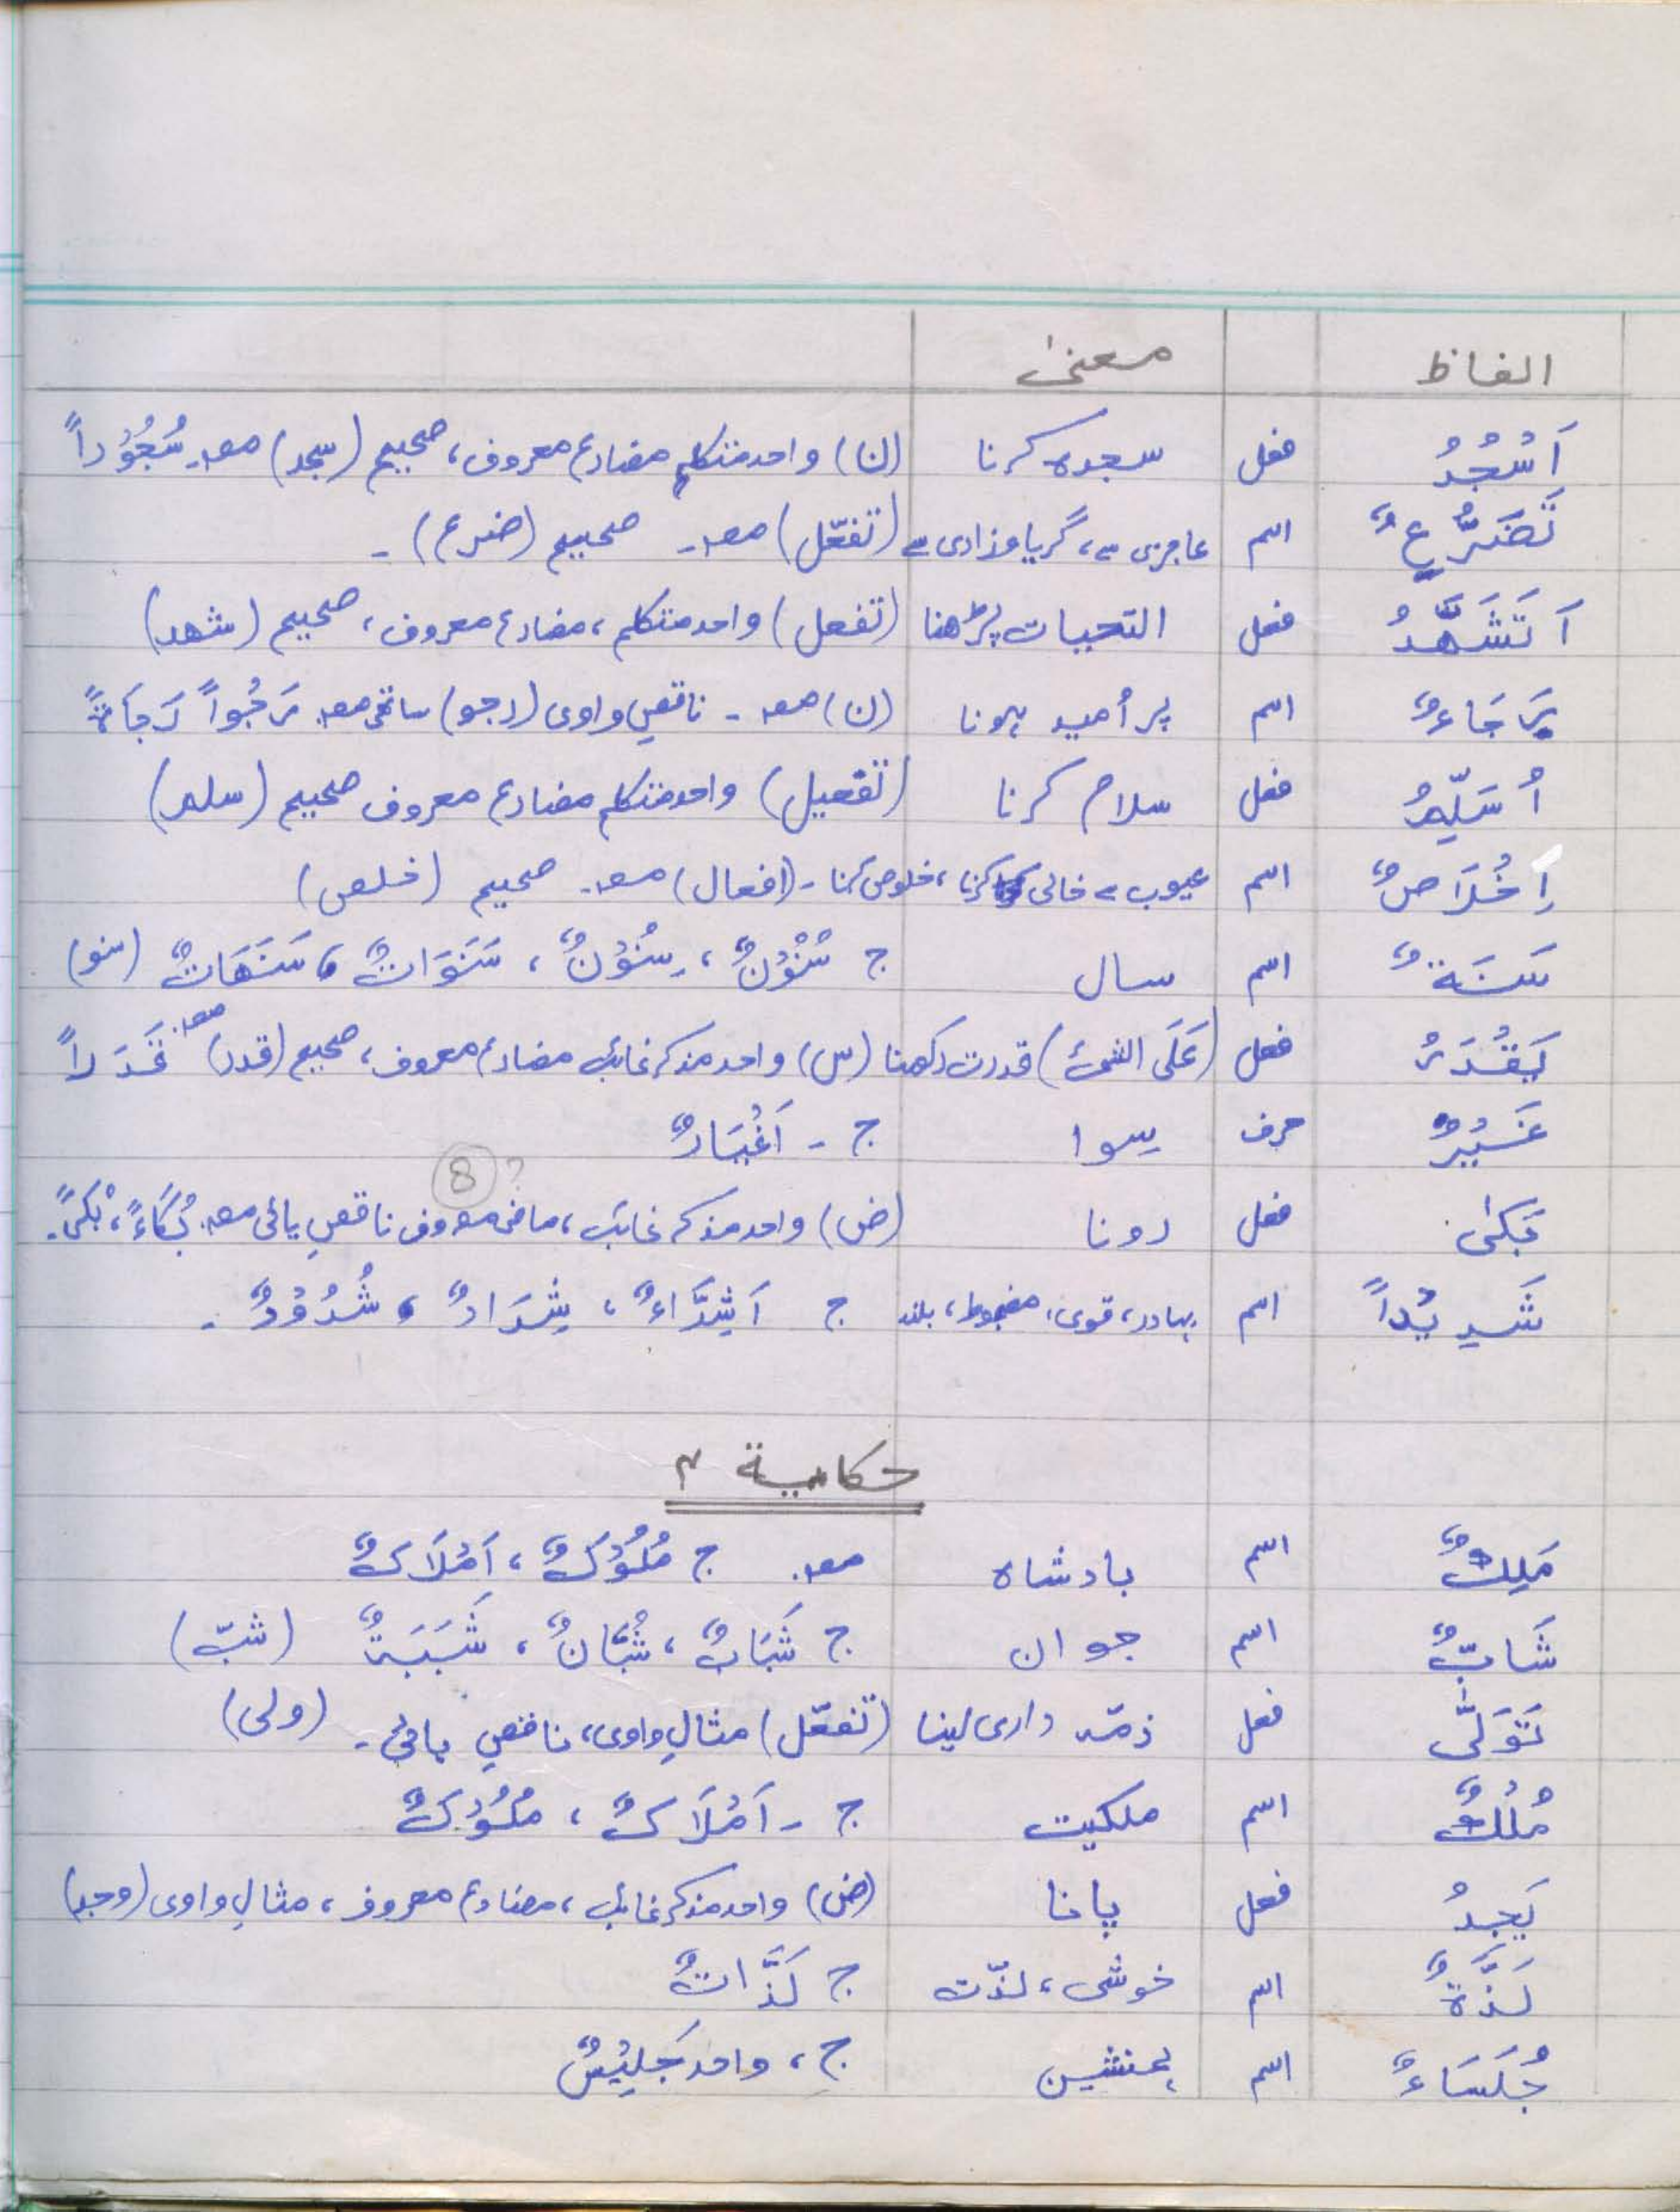 الفاظ معنیٰ
اَسْجُدُ فعل سجدہ کرنا (ن) واحد متکلم مضارع معروف، صحیح (سجد) مصد۔ سُجُوْداً
تَضَرُّعٌ اسم عاجزی سے، گریا وزاری سے (تفعّل) مصد۔ صحیح (ضرع)۔
اَتَشَهَّدُ فعل التحیات پڑھنا (تفعل) واحد متکلم، مضارع معروف، صحیح (شھد)
رَجَاءٌ اسم پر اُمید ہونا (ن) مصد۔ ناقصِ واوی (رجو) ساتھی مصد رَجُواً رَجَاةً
اُسَلِّمُ فعل سلام کرنا (تفعیل) واحد متکلم مضارع معروف صحیح (سلم)
اِخْلَاصٌ اسم عیوب سے خالی کرنا، خلوص کرنا۔ (افعال) مصد۔ صحیح (خلص)
سَنَةٌ اسم سال ج سُنُوْنٌ، سِنُوْنٌ، سَنَوَاتٌ، سَنَهَاتٌ (سنو)
يَقْدَرُ فعل (عَلَی الشئ) قدرت رکھنا (س) واحد مذکر غائب مضارع معروف، صحیح (قدر) مصد۔ قَدَراً
غَيْرٌ حرف سِوا ج ۔ اَغْيَارٌ
8 ?
بَکیٰ فعل رونا (ض) واحد مذکر غائب، ماضی معروف ناقصِ یائی مصد۔ بُكَاءً، بُکیً۔
شَدِيْداً اسم بہادر، قوی، مضبوط، بلند ج اَشِدَّاءٌ، شِدَادٌ، شُدُوْدٌ۔
حکایة ۴
مَلِكٌ اسم بادشاہ مصد۔ ج مُلُوْكٌ، اَمْلَاكٌ
شَابٌّ اسم جوان ج شَبَابٌ، شُبَّانٌ، شَبَبَةٌ (شبّ)
تَوَلّٰی فعل ذمّہ داری لینا (تفعّل) مثالِ واوی، ناقصِ یائی۔ (ولی)
مُلْكٌ اسم ملکیت ج ۔ اَمْلَاكٌ، مُلُوْكٌ
يَجِدُ فعل پانا (ض) واحد مذکر غائب، مضارع معروف، مثالِ واوی (وجد)
لَذَّةٌ اسم خوشی، لذّت ج لَذَّاتٌ
جُلَسَاءٌ اسم ہمنشین ج، واحد جَلِيْسٌ